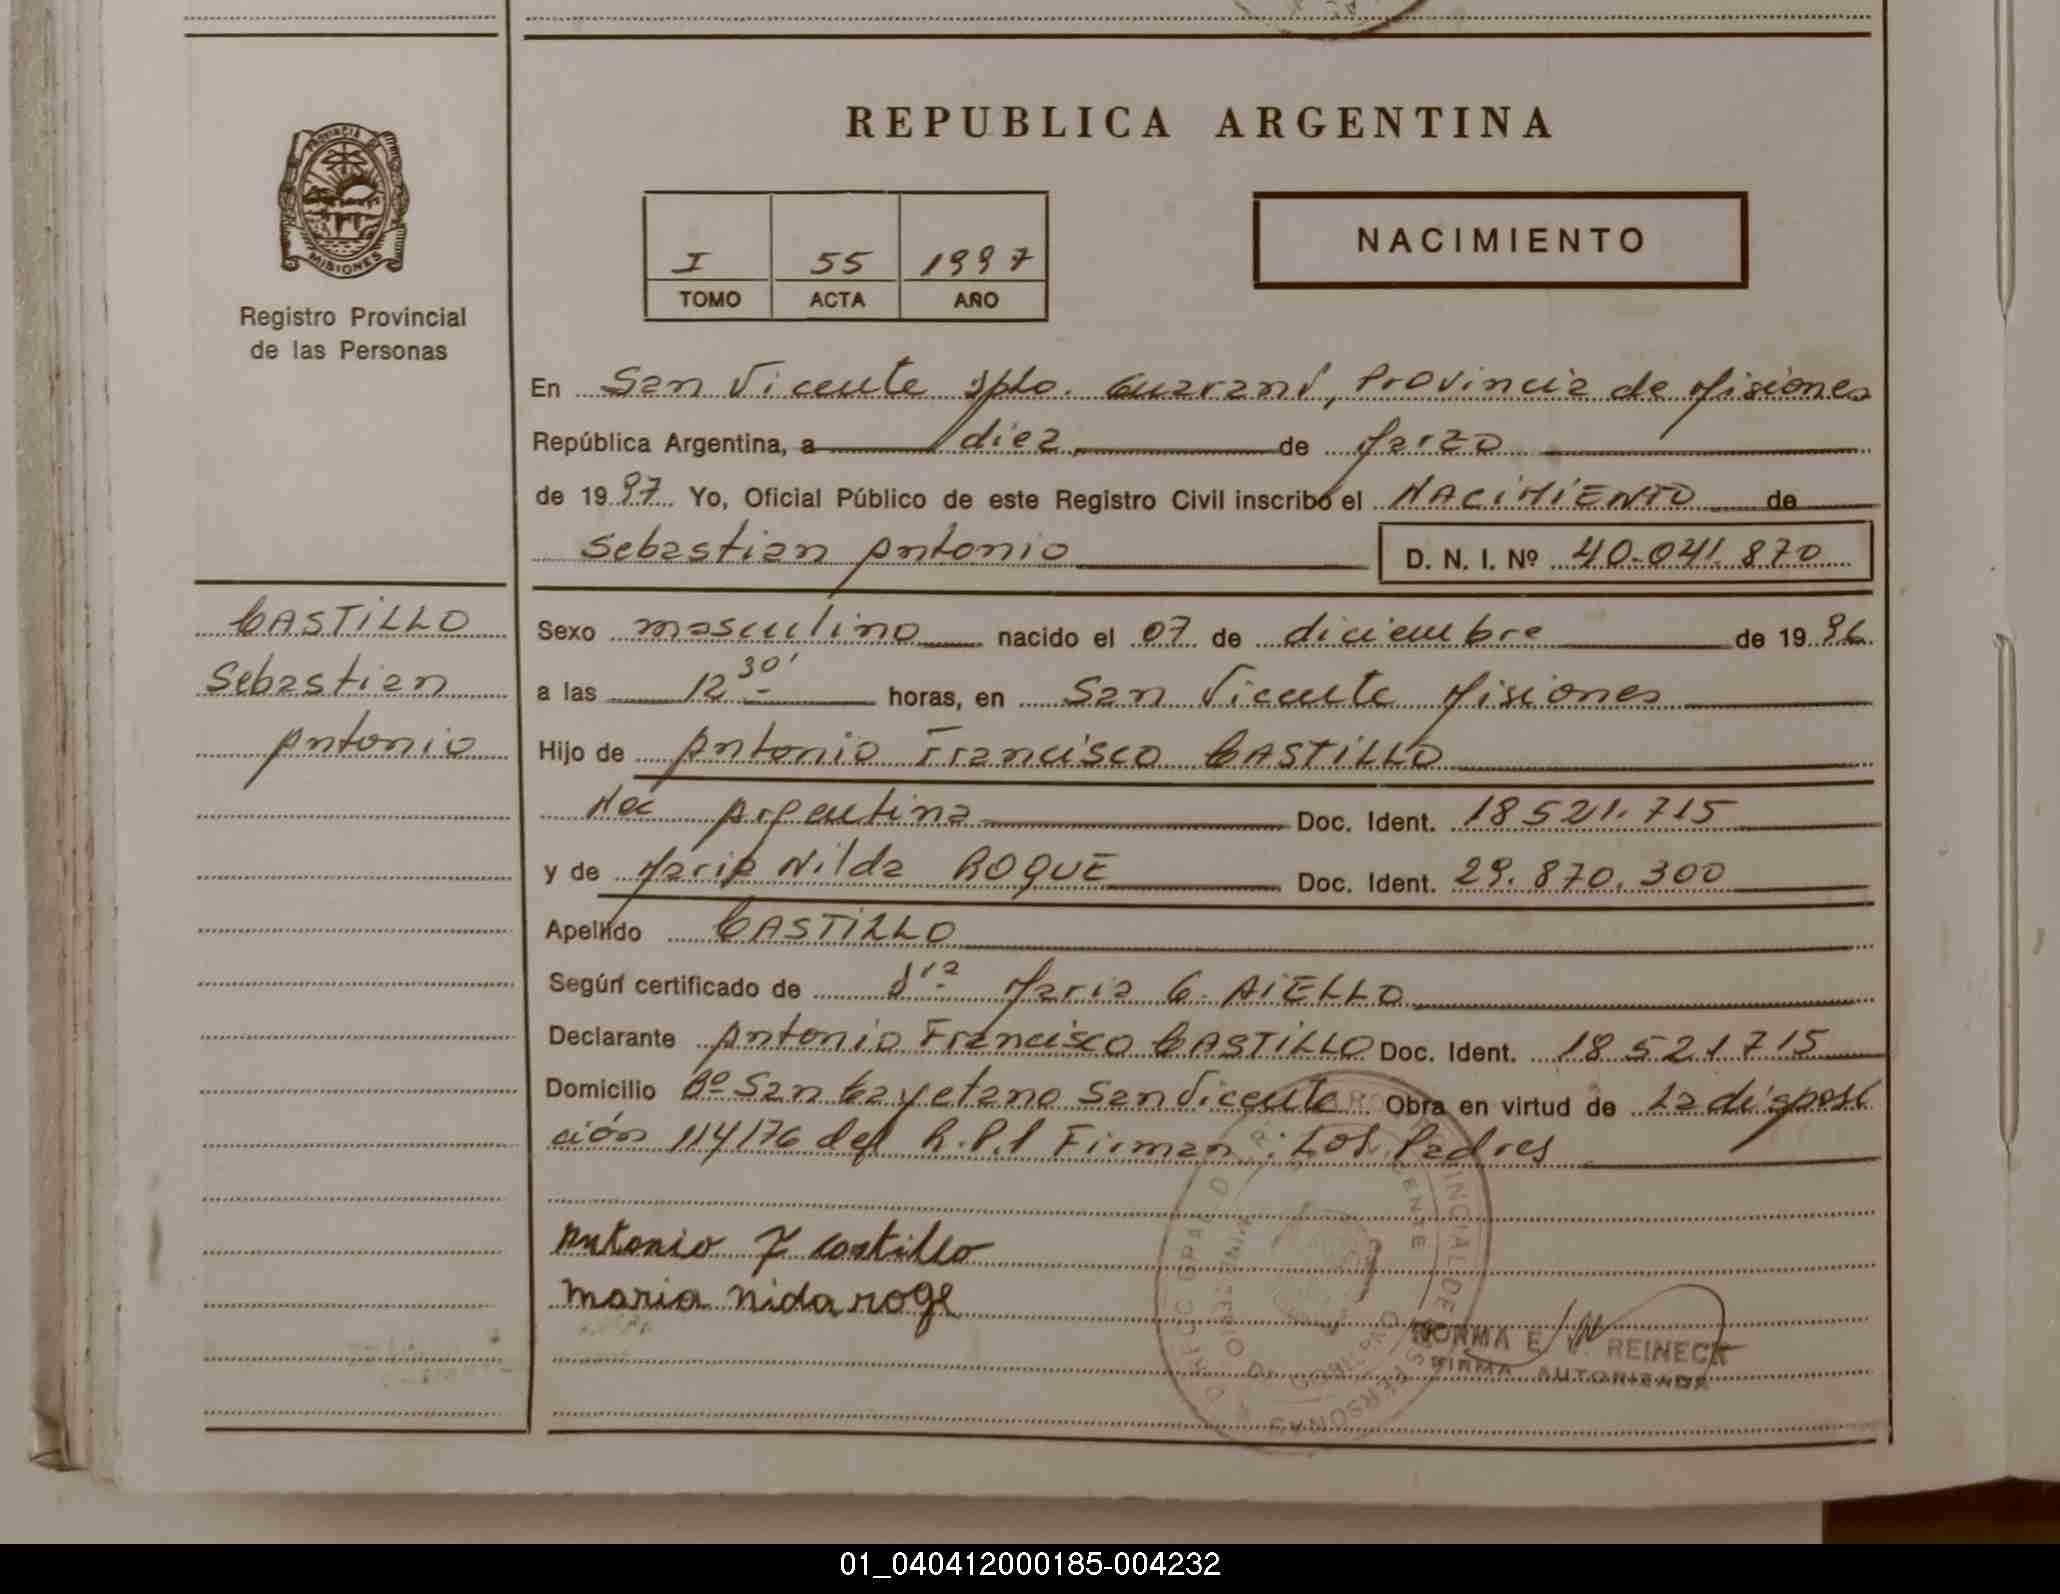 REPUBLICA ARGENTINA
PROVINCIA
MISIONES
Registro Provincial
de las Personas
I 55 1997
TOMO ACTA AÑO
NACIMIENTO
En San Vicente Dpto. Guaraní, Provincia de Misiones
República Argentina, a diez de Marzo
de 1997 Yo, Oficial Público de este Registro Civil inscribo el NACIMIENTO de
Sebastian Antonio D. N. I. Nº 40.041.870
CASTILLO
Sebastian
Antonio
Sexo masculino nacido el 07 de diciembre de 1996
a las 12 30' horas, en San Vicente Misiones
Hijo de Antonio Francisco CASTILLO
Nac Argentina Doc. Ident. 18521.715
y de Maria Nilda ROQUE Doc. Ident. 29.870.300
Apellido CASTILLO
Según certificado de Dra Maria G. AIELLO
Declarante Antonio Francisco CASTILLO Doc. Ident. 18521715
Domicilio Bº San Cayetano San Vicente Obra en virtud de La disposi
ción 114176 del R.P.P Firman: Los Padres
Antonio F Castillo
maria nida roqe
NORMA E. V. REINECK
FIRMA AUTORIZADA
01_040412000185-004232